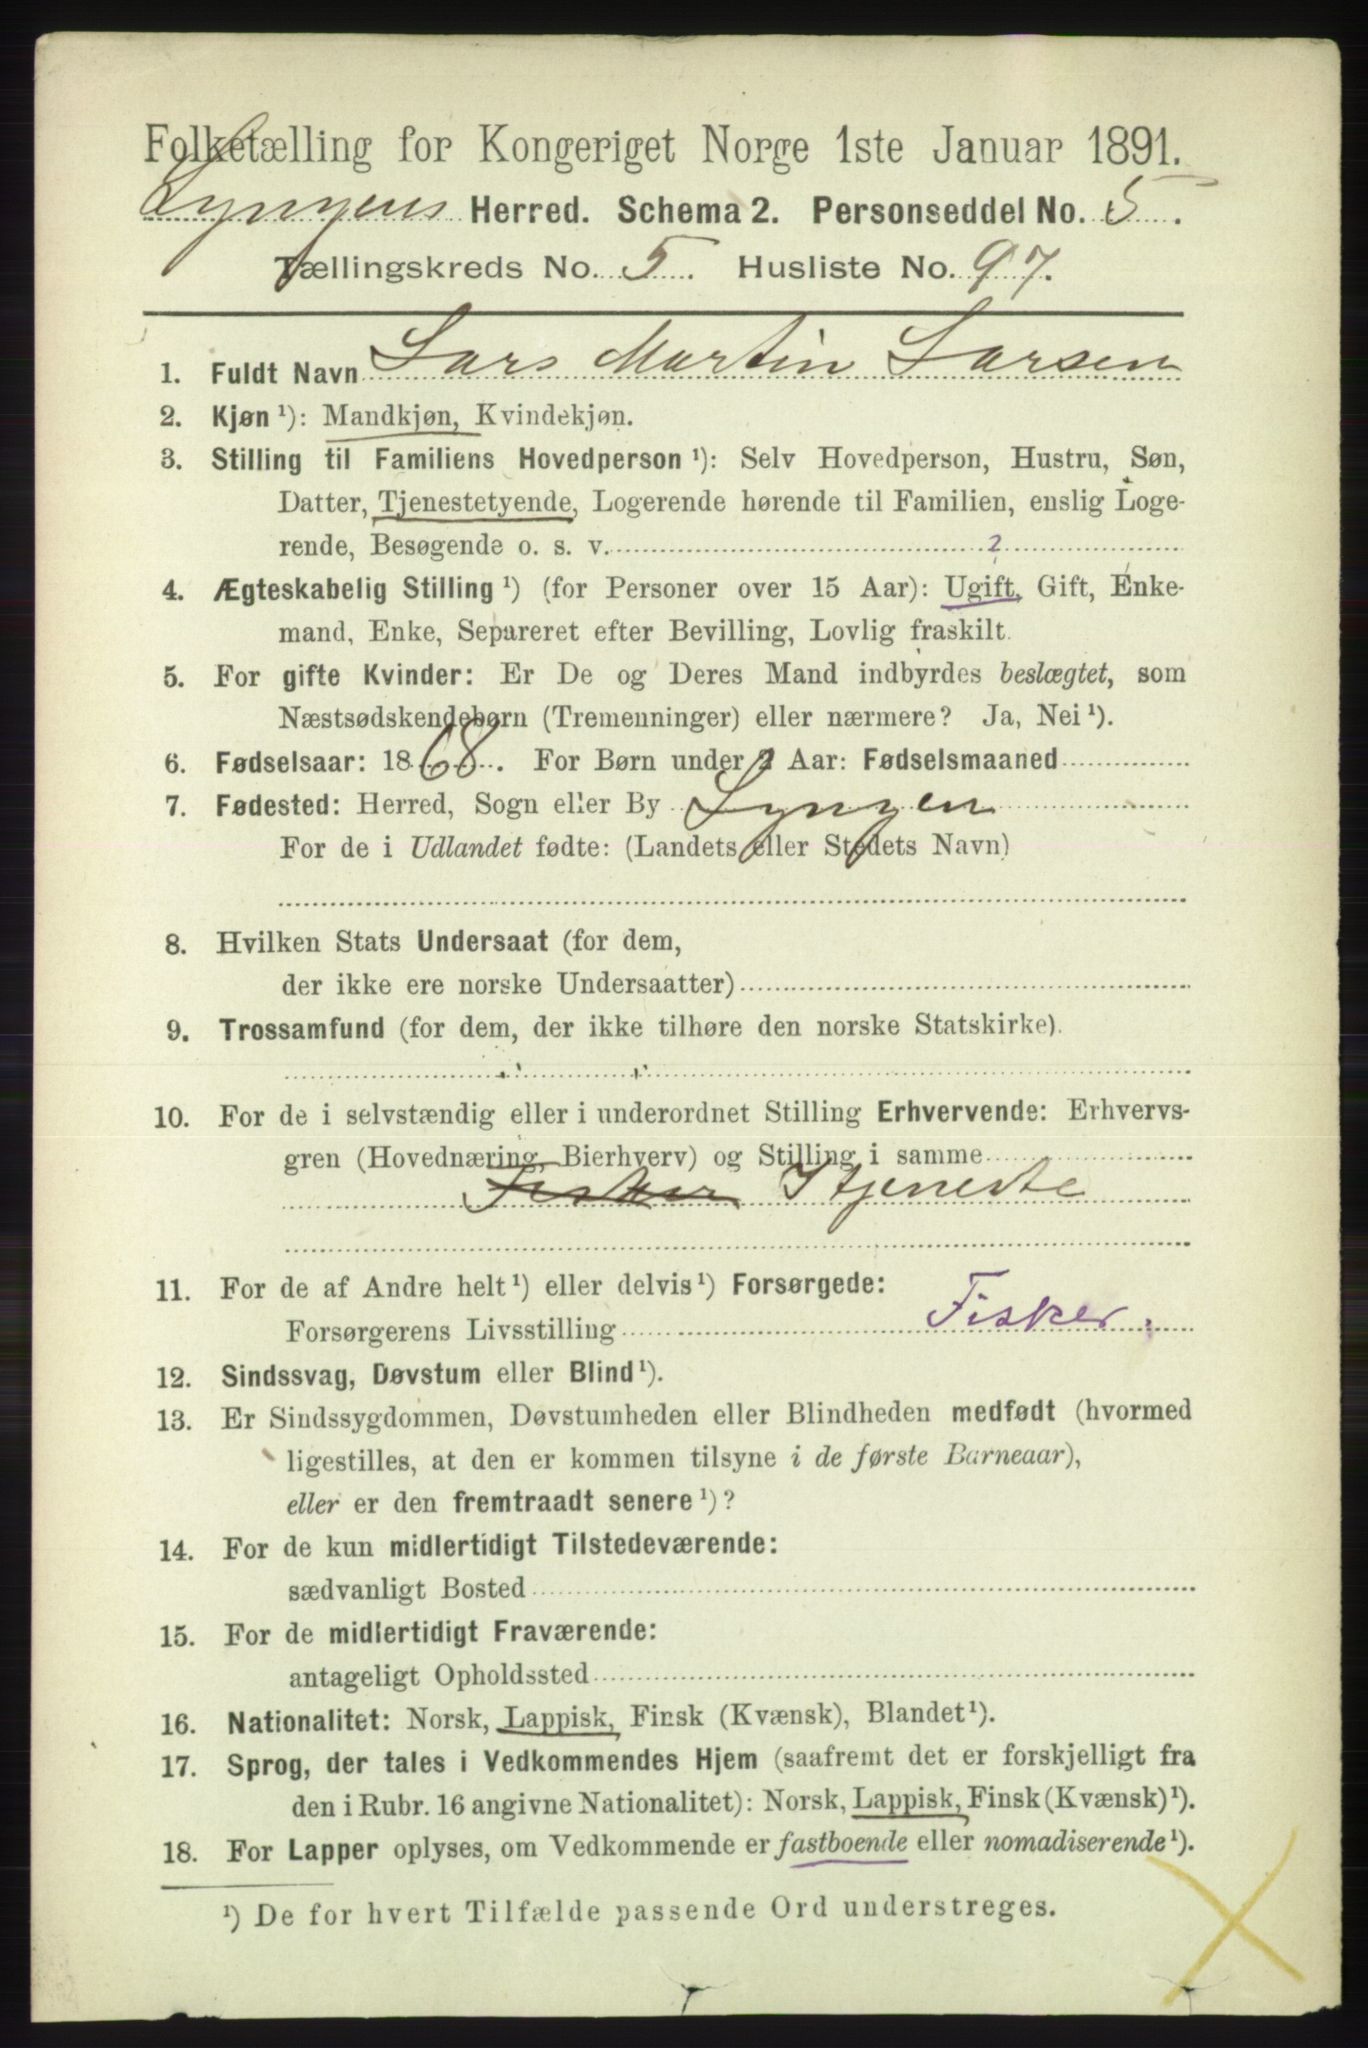 Folketælling for Kongeriget Norge 1ste Januar 1891.
Lyngens Herred. Schema 2. Personseddel No. 5.
Tællingskreds No. 5. Husliste No. 97.
1. Fuldt Navn Lars Martin Larsen
2. Kjøn ¹): Mandkjøn, Kvindekjøn.
3. Stilling til Familiens Hovedperson ¹): Selv Hovedperson, Hustru, Søn,
Datter, Tjenestetyende, Logerende hørende til Familien, enslig Loge-
rende, Besøgende o. s. v. 2
4. Ægteskabelig Stilling ¹) (for Personer over 15 Aar): Ugift, Gift, Enke-
mand, Enke, Separeret efter Bevilling, Lovlig fraskilt.
5. For gifte Kvinder: Er De og Deres Mand indbyrdes beslægtet, som
Næstsødskendebørn (Tremenninger) eller nærmere? Ja, Nei ¹).
6. Fødselsaar: 1868. For Børn under 2 Aar: Fødselsmaaned
7. Fødested: Herred, Sogn eller By Lyngen
For de i Udlandet fødte: (Landets eller Stedets Navn)
8. Hvilken Stats Undersaat (for dem,
der ikke ere norske Undersaatter)
9. Trossamfund (for dem, der ikke tilhøre den norske Statskirke).
10. For de i selvstændig eller i underordnet Stilling Erhvervende: Erhvervs-
gren (Hovednæring, Bierhverv) og Stilling i samme
Fisker I tjeneste
11. For de af Andre helt ¹) eller delvis ¹) Forsørgede:
Forsørgerens Livsstilling Fisker.
12. Sindssvag, Døvstum eller Blind ¹).
13. Er Sindssygdommen, Døvstumheden eller Blindheden medfødt (hvormed
ligestilles, at den er kommen tilsyne i de første Barneaar),
eller er den fremtraadt senere ¹)?
14. For de kun midlertidigt Tilstedeværende:
sædvanligt Bosted
15. For de midlertidigt Fraværende:
antageligt Opholdssted
16. Nationalitet: Norsk, Lappisk, Finsk (Kvænsk), Blandet ¹).
17. Sprog, der tales i Vedkommendes Hjem (saafremt det er forskjelligt fra
den i Rubr. 16 angivne Nationalitet): Norsk, Lappisk, Finsk (Kvænsk) ¹).
18. For Lapper oplyses, om Vedkommende er fastboende eller nomadiserende ¹).
¹) De for hvert Tilfælde passende Ord understreges.